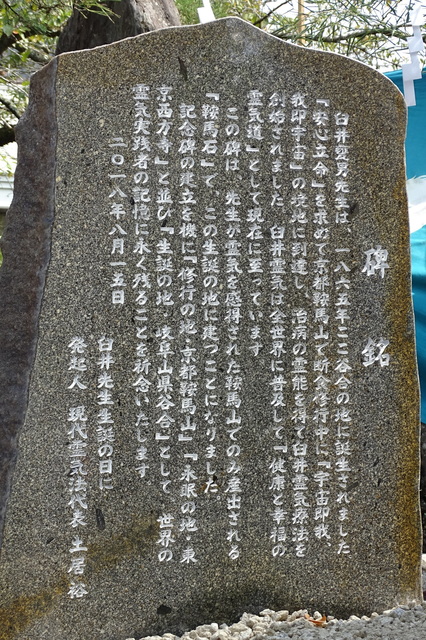 碑銘
臼井甕男先生は、一八六五年ここ谷合の地に誕生されました
「安心立命」を求めて京都鞍馬山で断食修行中に『宇宙即我、
我即宇宙』の境地に到達し、治病の霊能を得て臼井霊気療法を
創始されました 臼井霊気は全世界に普及して『健康と幸福の
霊気道』として現在に至っています
この碑は、先生が霊気を感得された鞍馬山でのみ産出される
『鞍馬石』で、この生誕の地に建つことになりました
記念碑の建立を機に『修行の地・京都鞍馬山』『永眠の地・東
京西方寺』と並び『生誕の地・岐阜山県谷合』として、世界の
霊気実践者の記憶に永く残ることを祈念いたします
二〇一八年八月一五日
臼井先生生誕の日に
発起人 現代霊気法代表 土居 裕